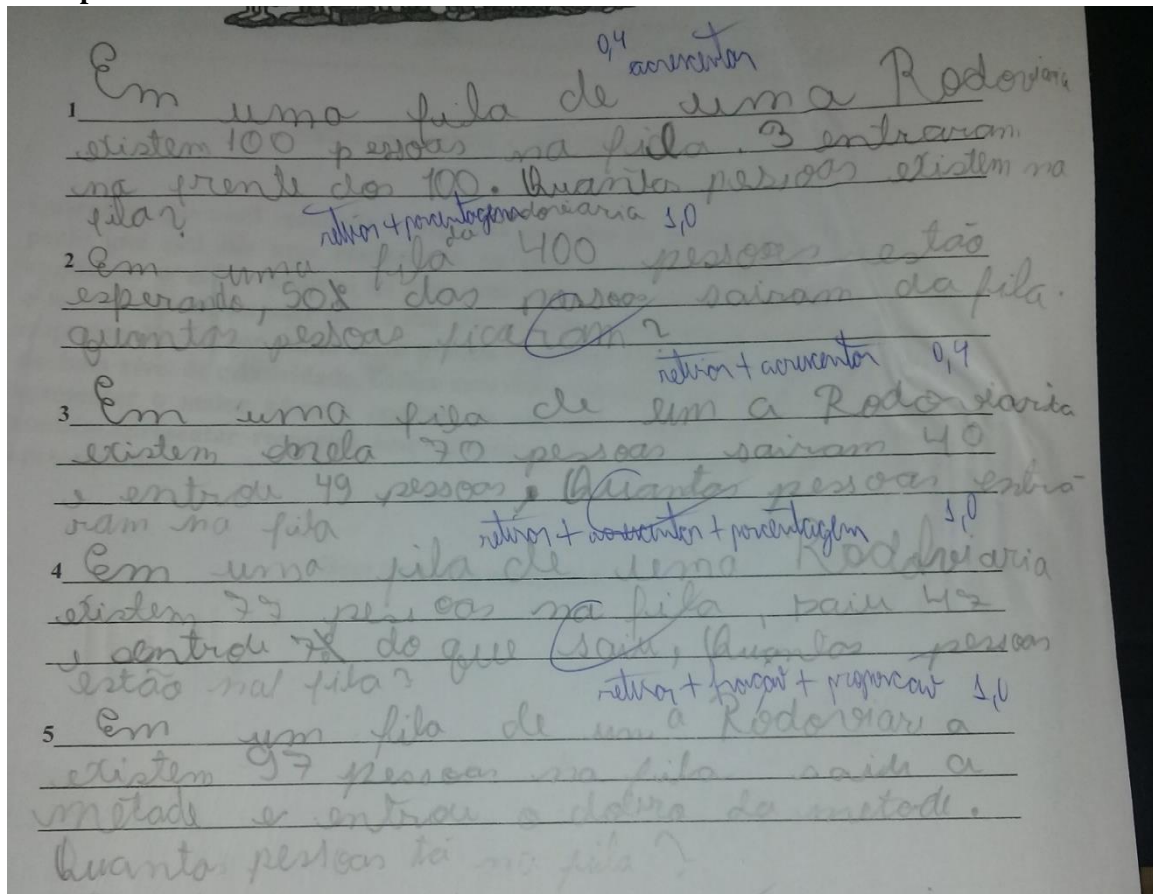 0,4 acrescentar
1 Em uma fila de uma Rodoviaria
existem 100 pessoas na fila. 3 entraram
na frente dos 100. Quantas pessoas existem na
fila?
retirar + porcentagem 1,0
rodoviaria
2 Em uma fila da 400 pessoas estão
esperando, 50% das pessoas sairam da fila.
quantas pessoas ficaram?
retirar + acrescentar 0,4
3 Em uma fila de um a Rodoviaria
existem nela 70 pessoas sairam 40
e entrou 49 pessoas, Quantas pessoas entra
ram na fila
retirar + acrescentar + porcentagem 1,0
4 Em uma fila de uma Rodoviaria
existem 77 pessoas na fila, saiu 47
e entrou 7% do que saiu, Quantas pessoas
estão na fila?
retirar + fração + proporção 1,0
5 Em um fila de uma Rodoviari a
existem 97 pessoas na fila saiu a
metade e entrou o dobro da metade.
Quantas pessoas tá na fila?